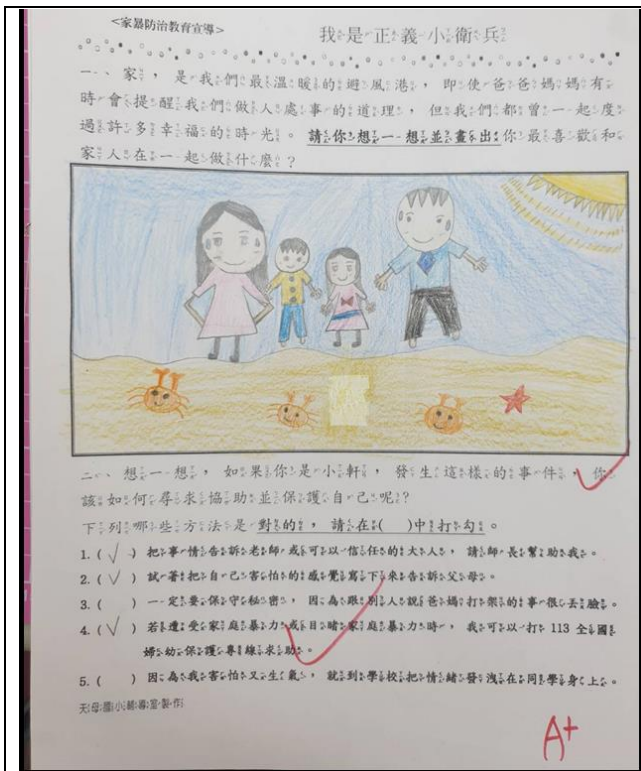 <家暴防治教育宣導>
我是正義小衛兵
一、家，是我們最溫暖的避風港，即使爸爸媽媽有
時會提醒我們做人處事的道理，但我們都曾一起度
過許多幸福的時光。請你想一想並畫出你最喜歡和
家人在一起做什麼？
二、想一想，如果你是小軒，發生這樣的事件，你
該如何尋求協助並保護自己呢？
下列哪些方法是對的，請在( )中打勾。
1. (√) 把事情告訴老師或可以信任的大人，請師長幫助我。
2. (√) 試著把自己害怕的感覺寫下來告訴父母。
3. ( ) 一定要保守秘密，因為跟別人說爸媽打架的事很丟臉。
4. (√) 若遭受家庭暴力或目睹家庭暴力時，我可以打 113 全國
婦幼保護專線求助。
5. ( ) 因為我害怕又生氣，就到學校把情緒發洩在同學身上。
天母國小輔導室製作
A+